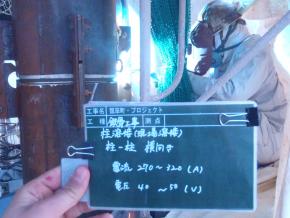 工事名 プロジェクト
工種 鉄骨工事 測点
柱溶接(現場溶接)
柱－柱 横向き
電流 270～320 (A)
電圧 40～50 (V)